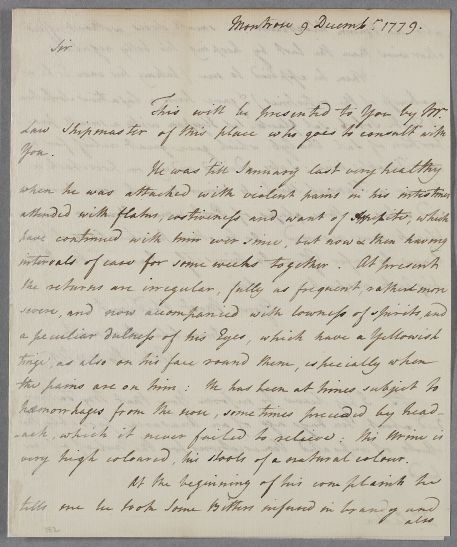 Montrose 9 Decembr. 1779.
Sir
This will be presented to You by Mr.
Law Shipmaster of this place who goes to consult with
You.
He was till January last very healthy
when he was attacked with violent pains in his intestines
attended with flatus, costiveness and want of Appetite, which
have continued with him ever since, but now & then having
intervals of ease for some weeks together. At present
the returns are irregular, fully as frequent, rather more
severe, and now accompanied with lowness of spirits, and
a peculiar dulness of his Eyes, which have a Yellowish
tinge, as also on his face round them, especially when
the pains are on him: He has been at times subject to
hæmorrhages from the nose, sometimes preceeded by head-
-ach, which it never failed to relieve: his Urine is
very high coloured, his stools of a natural colour.
At the beginning of his complaints he
tells me he took some Bitters infused in brandy and
also